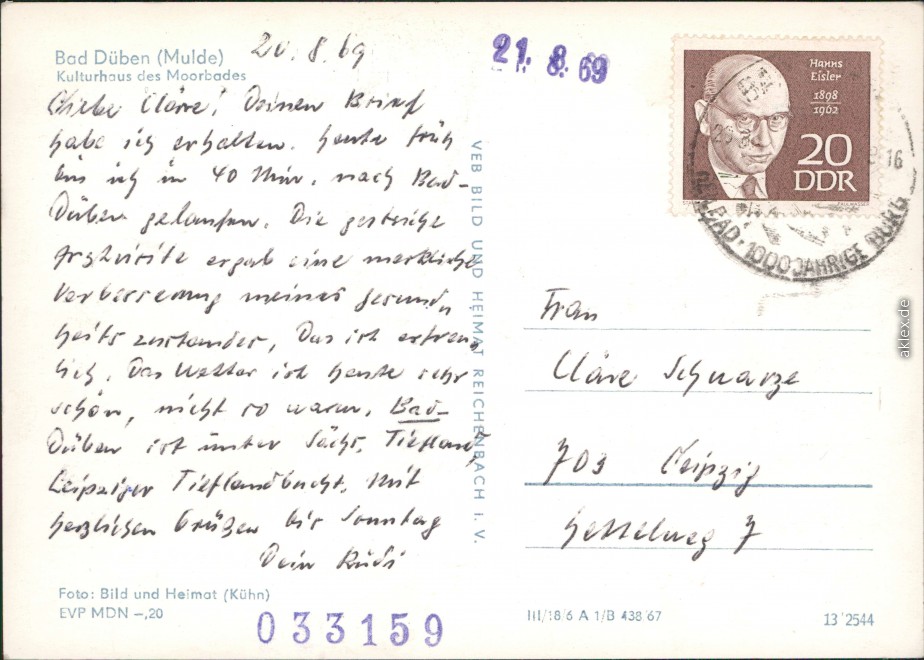 Bad Düben (Mulde)
Kulturhaus des Moorbades
20.8.69
21. 8. 69
Liebe Cläre! Deinen Brief
habe ich erhalten. Heute früh
bin ich in 40 Min. nach Bad-
Düben gelaufen. Die gestrige
Arztvisite ergab eine merkliche
Verbesserung meines Gesund-
heitszustandes, Das ist erfreu-
lich. Das Wetter ist heute sehr
schön, nicht so warm. Bad-
Düben ist unter Sächs. Tiefland,
Leipziger Tieflandbucht. Mit
herzlichen Grüßen bis Sonntag
Dein Rudi
Foto: Bild und Heimat (Kühn)
EVP MDN –,20
033159
VEB BILD UND HEIMAT REICHENBACH I. V.
Hanns
Eisler
1898
1962
20
DDR
BAD · 1000 JÄHRIGE BURG
16
Frau
Cläre Schwarze
703 Leipzig
7
III/18/6 A 1/B 438/67
13 2544
aklex.de